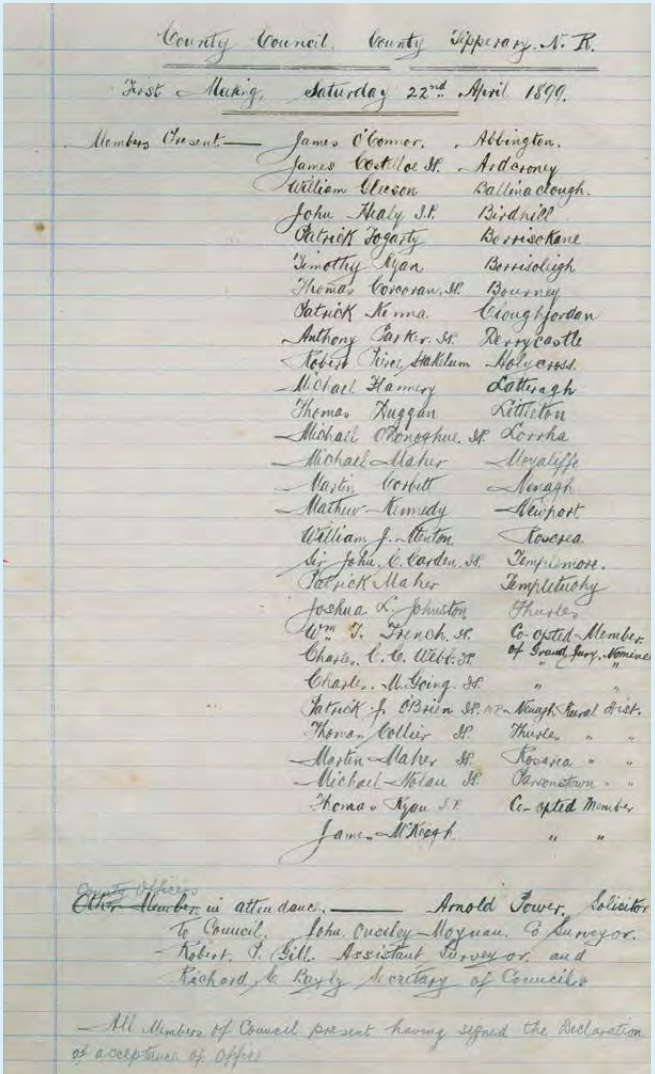 County Council. County Tipperary. N. R.
First Meeting, Saturday 22nd April 1899.
Members Present. — James O'Connor. Abbington.
James Costelloe J.P. Ardcroney
William Gleeson Ballinaclough.
John Healy J.P. Birdhill
Patrick Fogarty Borrisokane
Timothy Ryan Borrisoleigh
Thomas Corcoran. J.P. Bourney
Patrick Kenna. Cloughjordan
Anthony Parker. J.P. Derrycastle
Robert Pierce Stakelum Holycross.
Michael Flannery Latteragh
Thomas Duggan Littleton
Michael O'Donoghue. J.P. Lorrha
Michael Maher Moyaliffe
Martin Corbett Nenagh
Mathew Kennedy Newport
William J. Menton Roscrea.
Sir John. C. Carden. J.P. Templemore.
Patrick Maher Templetuohy
Joshua L. Johnston Thurles
Wm T. Trench. J.P. Co-opted Member
Charles. C. C. Webb. J.P. of Grand Jury. Nominee
Charles. M. Going. J.P. " "
Patrick J. O'Brien J.P. M.P. Nenagh Rural Dist.
Thomas Collier J.P. Thurles " "
Martin Maher J.P. Roscrea " "
Michael Nolan J.P. Parsonstown " "
Thomas Ryan J.P. Co-opted Member
James McKeogh. " "
County Officers
Other Member in attendance. — Arnold Power, Solicitor
to Council. John. Moynan. Co Surveyor.
Robert. P. Gill. Assistant Surveyor. and
Richard Secretary of Councils
All Members of Council present having signed the Declaration
of acceptance of Office